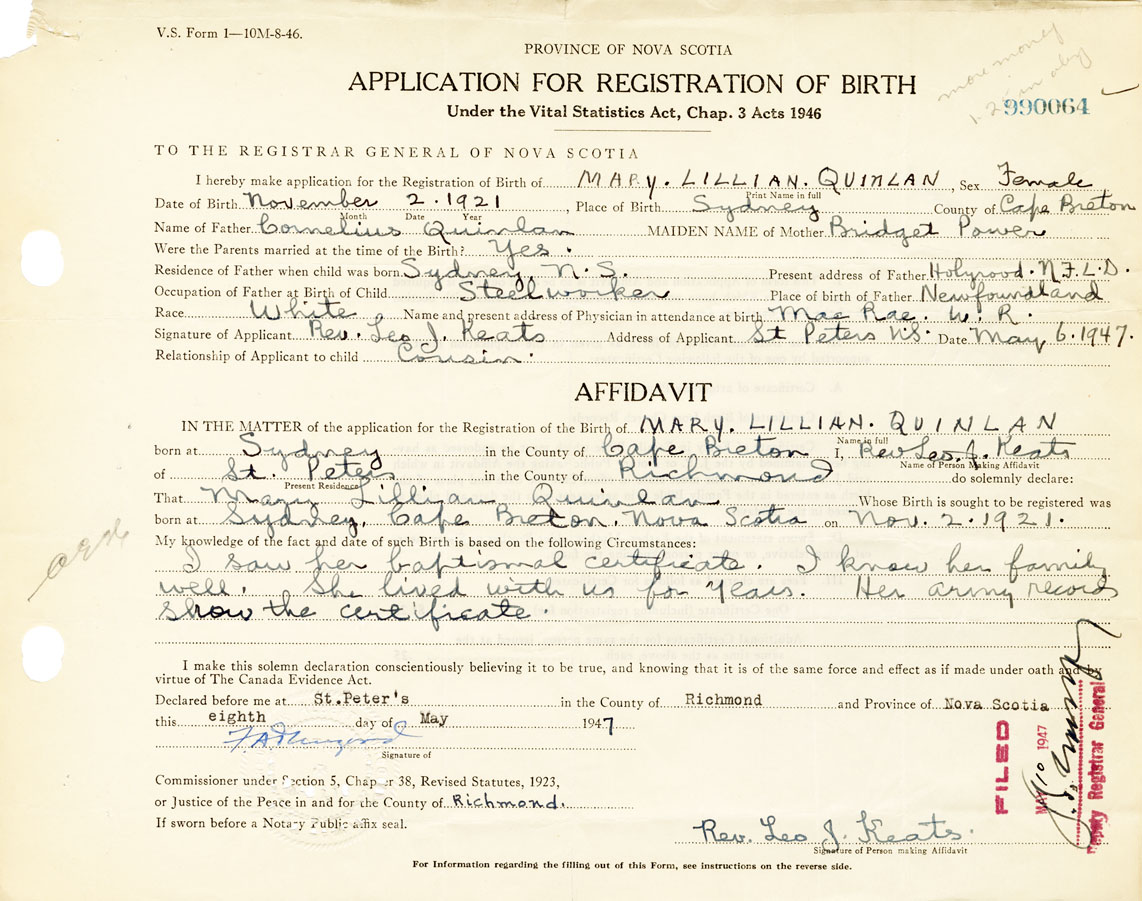 V.S. Form 1—10M-8-46.
PROVINCE OF NOVA SCOTIA
more money
APPLICATION FOR REGISTRATION OF BIRTH
Under the Vital Statistics Act, Chap. 3 Acts 1946
990064
TO THE REGISTRAR GENERAL OF NOVA SCOTIA
I hereby make application for the Registration of Birth of MARY. LILLIAN. QUINLAN, Sex Female
Print Name in full
Date of Birth November 2. 1921, Place of Birth Sydney County of Cape Breton
Month Date Year
Name of Father Cornelius Quinlan MAIDEN NAME of Mother Bridget Power
Were the Parents married at the time of the Birth? Yes.
Residence of Father when child was born Sydney, N.S. Present address of Father Holyrood. N.F.L.D.
Occupation of Father at Birth of Child Steelworker Place of birth of Father Newfoundland
Race White Name and present address of Physician in attendance at birth Mac Rae. W. R.
Signature of Applicant Rev. Leo J. Keats Address of Applicant St Peters N.S. Date May 6. 1947.
Relationship of Applicant to child Cousin.
AFFIDAVIT
IN THE MATTER of the application for the Registration of the Birth of MARY. LILLIAN. QUINLAN
Name in full
born at Sydney in the County of Cape Breton I, Rev Leo. J. Keats
Name of Person Making Affidavit
of St. Peters in the County of Richmond do solemnly declare:
Present Residence
That Mary Lillian Quinlan Whose Birth is sought to be registered was
born at Sydney, Cape Breton. Nova Scotia on Nov. 2. 1921.
My knowledge of the fact and date of such Birth is based on the following Circumstances:
I saw her baptismal certificate. I know her family
well. She lived with us for years. Her army records
show the certificate.
I make this solemn declaration conscientiously believing it to be true, and knowing that it is of the same force and effect as if made under oath and by
virtue of The Canada Evidence Act.
Declared before me at St.Peter's in the County of Richmond and Province of Nova Scotia
this eighth day of May 1947
Signature of
Commissioner under Section 5, Chapter 38, Revised Statutes, 1923,
or Justice of the Peace in and for the County of Richmond.
If sworn before a Notary Public affix seal.
Rev. Leo J. Keats.
Signature of Person making Affidavit
FILED
MAY 10 1947
Deputy Registrar General
For Information regarding the filling out of this Form, see instructions on the reverse side.